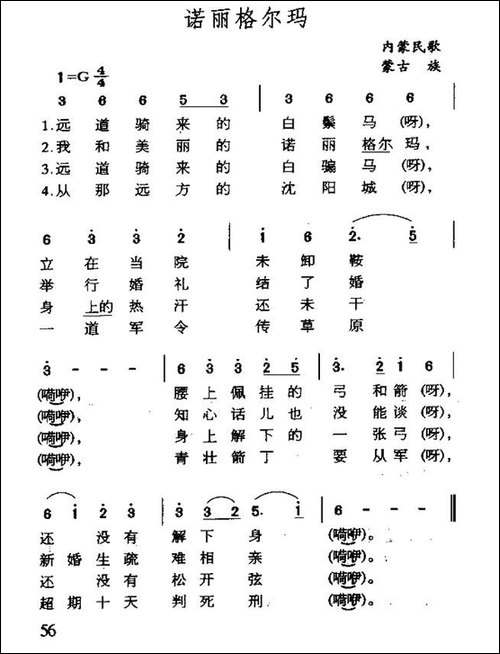 诺丽格尔玛
内蒙民歌
蒙古 族
1=G 4/4
3 6 6 5 3 | 3 6 6 6 |
1.远道骑来的 白鬃马(呀),
2.我和美丽的 诺丽格尔玛,
3.远道骑来的 白骗马(呀),
4.从那远方的 沈阳城(呀),
6 3 3 2 | 1 6 2. 5
立在当院 未卸鞍
举行婚礼 结了婚
身上的热汗 还未干
一道军令 传草原
3 - - - | 6 3 3 2 5 | 3. 2 1 6 |
(嗬咿), 腰上佩挂的 弓和箭(呀),
(嗬咿), 知心话儿也 没能谈(呀),
(嗬咿), 身上解下的 一张弓(呀),
(嗬咿), 青壮箭丁 要从军(呀),
6 1 2 3 | 3 3 2 5. 1 | 6 - - -
还没有 解下身 (嗬咿)。
新婚生疏 难相亲 (嗬咿)。
还没有 松开弦 (嗬咿)。
超期十天 判死刑 (嗬咿)。
56